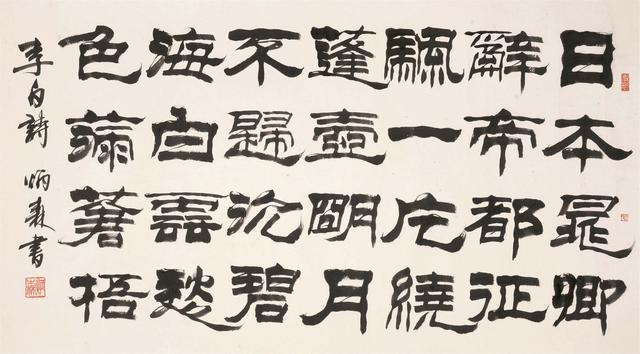 日本晁卿
辭帝都征
颿一片繞
蓬壺明月
不歸沈碧
海白雲愁
色滿蒼梧
李白詩 炳森書